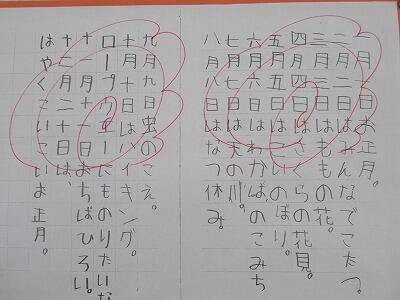 一月一日お正月。
二月二日はみんなでこたつ。
三月三日はももの花。
四月四日はさくらの花見。
五月五日はこいのぼり。
六月六日はわかばのこみち
七月七日は天の川。
八月八日はなつ休み。
九月九日虫のこえ。
十月十日はハイキング。
ロープウェーにものりたいな
十一月十一日おちばひろい。
十二月二十日は、
はやくこいこいお正月。